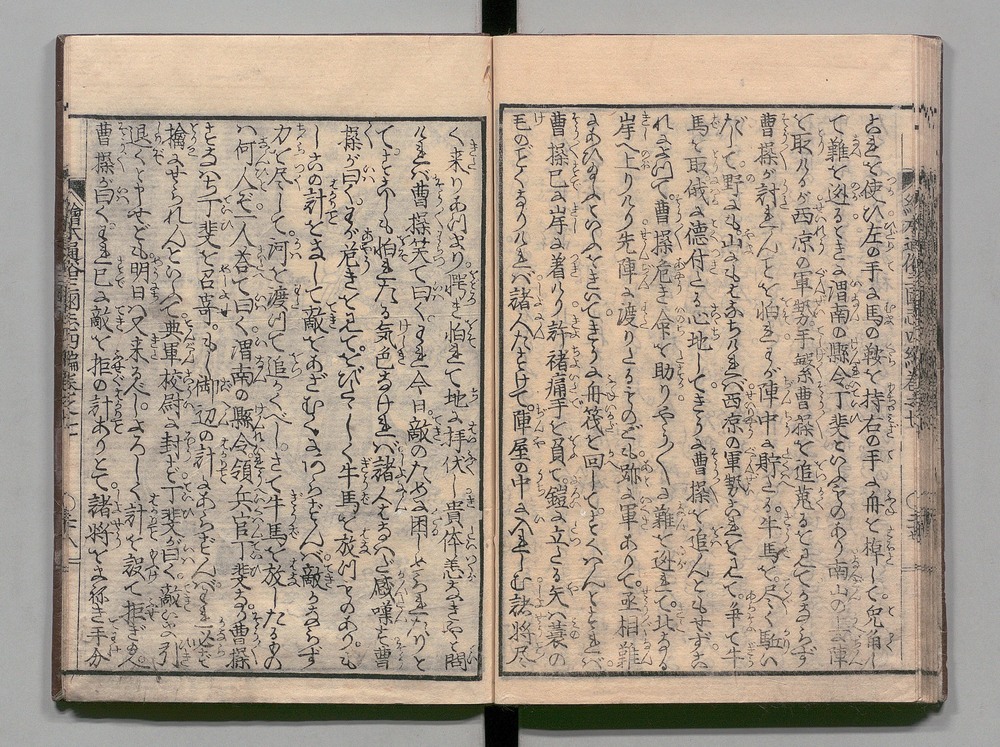 これを使ひ左の手に馬の鞍を持右の手に舟を棹して兜角し
て難を逃るときに渭南の縣令丁斐といふものあり南山の上に陣
を取ルが西凉の軍勢手繁曹操を追蒐るを見てかならず
曹操が討れんことを怕れ陣中に貯たる牛馬を尽く駈い
だして野にも山にもはなちけれバ西凉の軍勢これを見て争て牛
馬を取戒に德付たる心地してさらに曹操を追んともせずこ
れによつて曹操危き命を助りやう〳〵に難を逃れて北の
岸へ上りけり先陣に渡りたるものども弥に軍ありて丞相難
にあひ給ふといふをきいてきうに舟筏を回してすくハんとすれバ
曹操已に岸に着けり許褚痛手を負て鎧に立たる矢ハ蓑の
毛のごとくなりけれバ諸人たすけて陣屋の中に入れしむ諸將尽
く来りあつまり愕き怕れて地に拝伏し貴体恙なきやと問
けれバ曹操笑て曰くわれ今日敵のために困しめらればかりと
てすこしも怕れたる気色なけれバ諸人もなハだ感嘆す曹
操が曰くわが危きを見てひさしく牛馬を放つものありも
しこの計をなして敵をあざむくにあらずんバ敵かならず
力を尽して河を渡つて追うべしさて牛馬を放したるもの
ハ何人ぞ一人答て曰く渭南の縣令領兵官丁斐なり曹操
すなハち丁斐を召寄もし御辺の計にあらずんバわれ必ず
擒にせられんといひて典軍校尉に封ず丁斐が曰く敵しバらく引
退くと申せども明日ハ又来るべしよろしく計を設て拒ぎ給へ
曹操が曰くわれ已に敵を拒の計ありとて諸將をよび行き手分
繪本通俗三國志四編卷之十
繪本通俗三國志四編卷之十